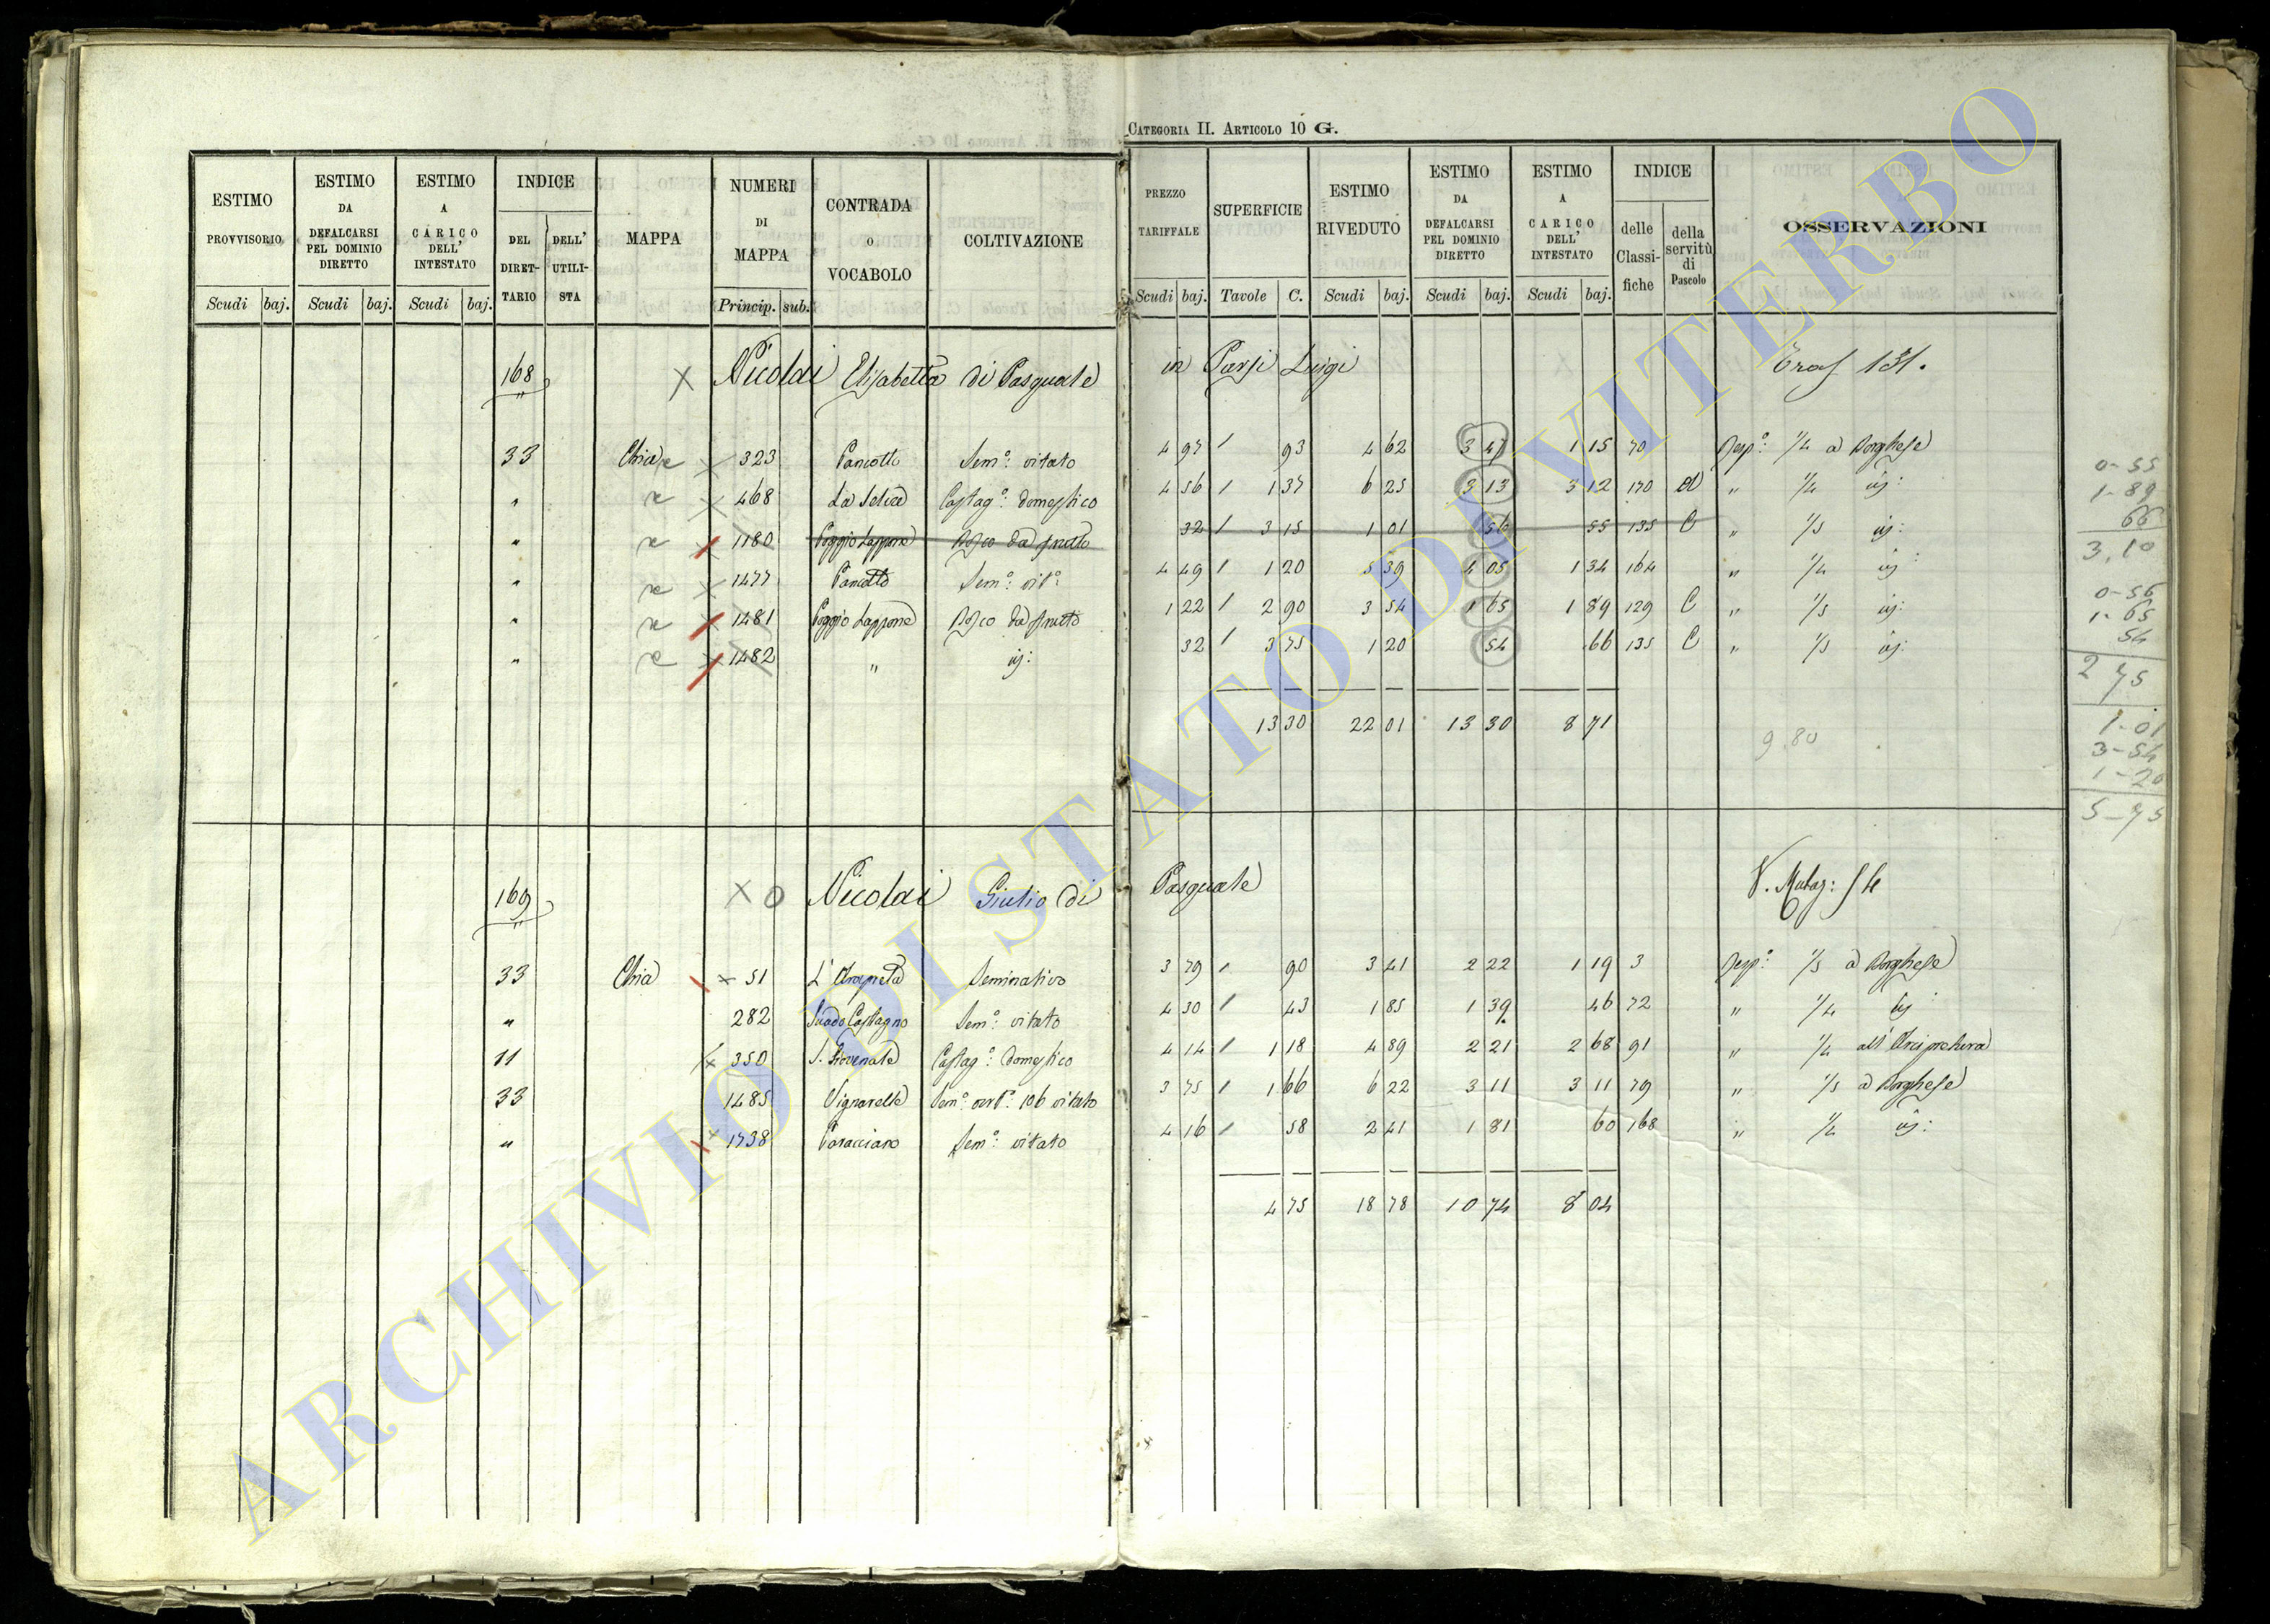 CATEGORIA II. ARTICOLO 10 G.
ESTIMO PROVVISORIO Scudi baj. ESTIMO DA DEFALCARSI PEL DOMINIO DIRETTO Scudi baj. ESTIMO A CARICO DELL' INTESTATO Scudi baj. INDICE DEL DIRETTARIO DELL' UTILISTA MAPPA NUMERI DI MAPPA Princip. sub. CONTRADA O VOCABOLO COLTIVAZIONE PREZZO TARIFFALE Scudi baj. SUPERFICIE Tavole C. ESTIMO RIVEDUTO Scudi baj. ESTIMO DA DEFALCARSI PEL DOMINIO DIRETTO Scudi baj. ESTIMO A CARICO DELL' INTESTATO Scudi baj. INDICE delle Classifiche della servitù di Pascolo OSSERVAZIONI
168 X Nicolai Elisabetta di Pasquale in Parsi Luigi Trasf 131.
33 Chia x 323 Pancotto Sem°: vitato 4 97 / 93 4 62 3 47 1 15 70 Resp°: 1/4 a Borghese
" x 468 La Selice Castag°: domestico 4 56 / 1 37 6 25 3 13 3 12 170 " 1/2 iſ:
" x 1180 Poggio Lappone Bosco da frutto 32 / 3 15 1 01 56 55 135 C " 1/5 iſ:
" x 1477 Pancotto Sem°: vit°: 4 49 / 1 20 5 39 4 05 1 34 164 " 1/4 iſ:
" x 1481 Poggio Lappone Bosco da frutto 1 22 / 2 90 3 54 1 65 1 89 129 C " 1/5 iſ:
" x 1482 " iſ: 32 / 3 75 1 20 54 66 135 C " 1/5 iſ:
13 30 22 01 13 30 8 71
9.80
0-55
1-89
66
3,10
0-56
1-65
54
2 75
1-01
3-54
1-20
5-75
169 X O Nicolai Giulio di Pasquale V. Mutaz: 54
33 Chia x 51 L' Arcipreta Seminativo 3 79 / 90 3 41 2 22 1 19 3 Resp°: 1/5 a Borghese
" 282 Castagno Sem°: vitato 4 30 / 43 1 85 1 39 46 72 " 1/4 iſ
11 x 350 S. Giovenale Castag°: domestico 4 14 / 1 18 4 89 2 21 2 68 91 " 1/4 all' Arcipretura
33 1485 Vignarelle Sem°: vitato 3 75 / 1 66 6 22 3 11 3 11 79 " 1/5 a Borghese
" x 1738 Paracciano Sem°: vitato 4 16 / 58 2 41 1 81 60 168 " 1/4 iſ:
4 75 18 78 10 74 8 04
ARCHIVIO DI STATO DI VITERBO